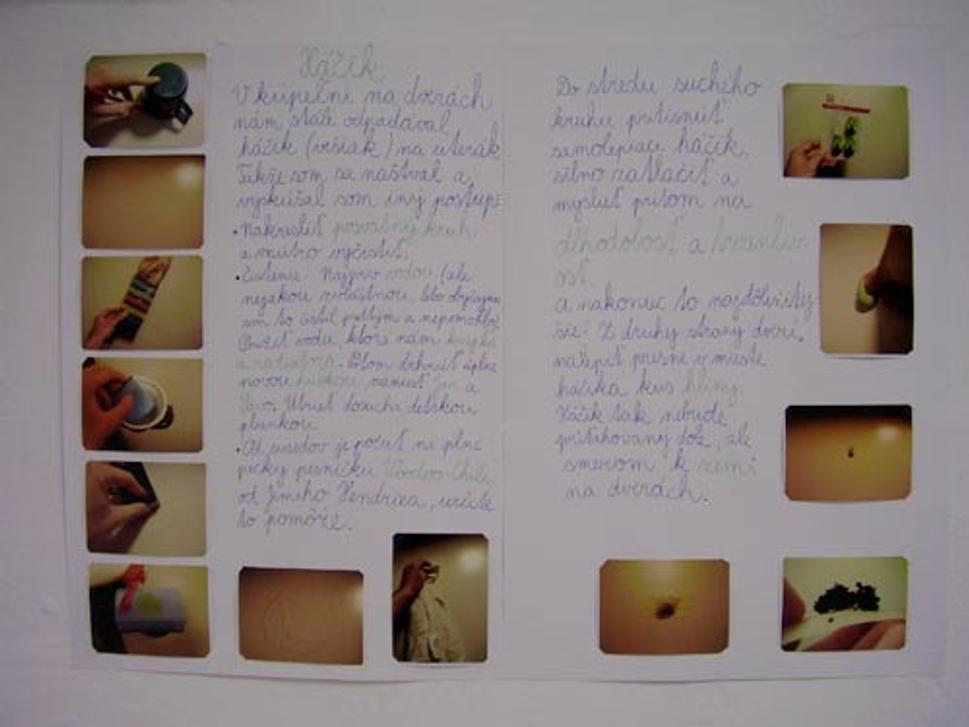 Háčik
V kúpelni na dverách
nám stále odpadával
háčik (vešiak) na uterák
Takže som sa naštval a
vyskúšal som iný postup:
• nakresliť posvätný kruh,
a vnútro vyčistiť.
• Čistenie: Najprv vodou (ale
nejakou zvláštnou, lebo obyčajnou
som to čistil predtým a nepomohlo)
Použiť vodu, ktorá nám kvapká
z radiátora. Potom drhnúť úplne
novou kefkou, namiesť Jar a
Savo. Utrieť dosucha detskou
plienkou.
• Od susedov je počuť na plné
pecky pesničku Voodoo Chile,
od Jimiho Hendrixa, určite
to pomôže.
Do stredu suchého
kruhu pritisnúť
samolepiaci háčik,
silno zatlačiť a
myslieť pritom na
dlhodobosť a trvanliv-
osť.
A nakoniec to najdôležitej-
šie: Z druhej strany dverí,
nalepiť presne v mieste
háčika kus hliny.
Háčik tak nebude
priťahovaný dole, ale
smerom k zemi
na dverách.